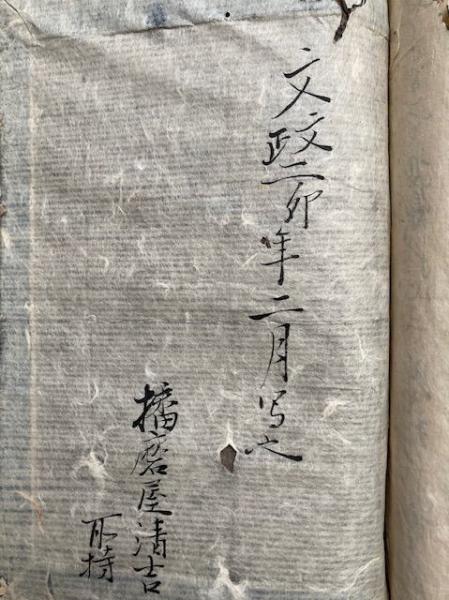 文政二卯年二月写之
播磨屋清吉
所持